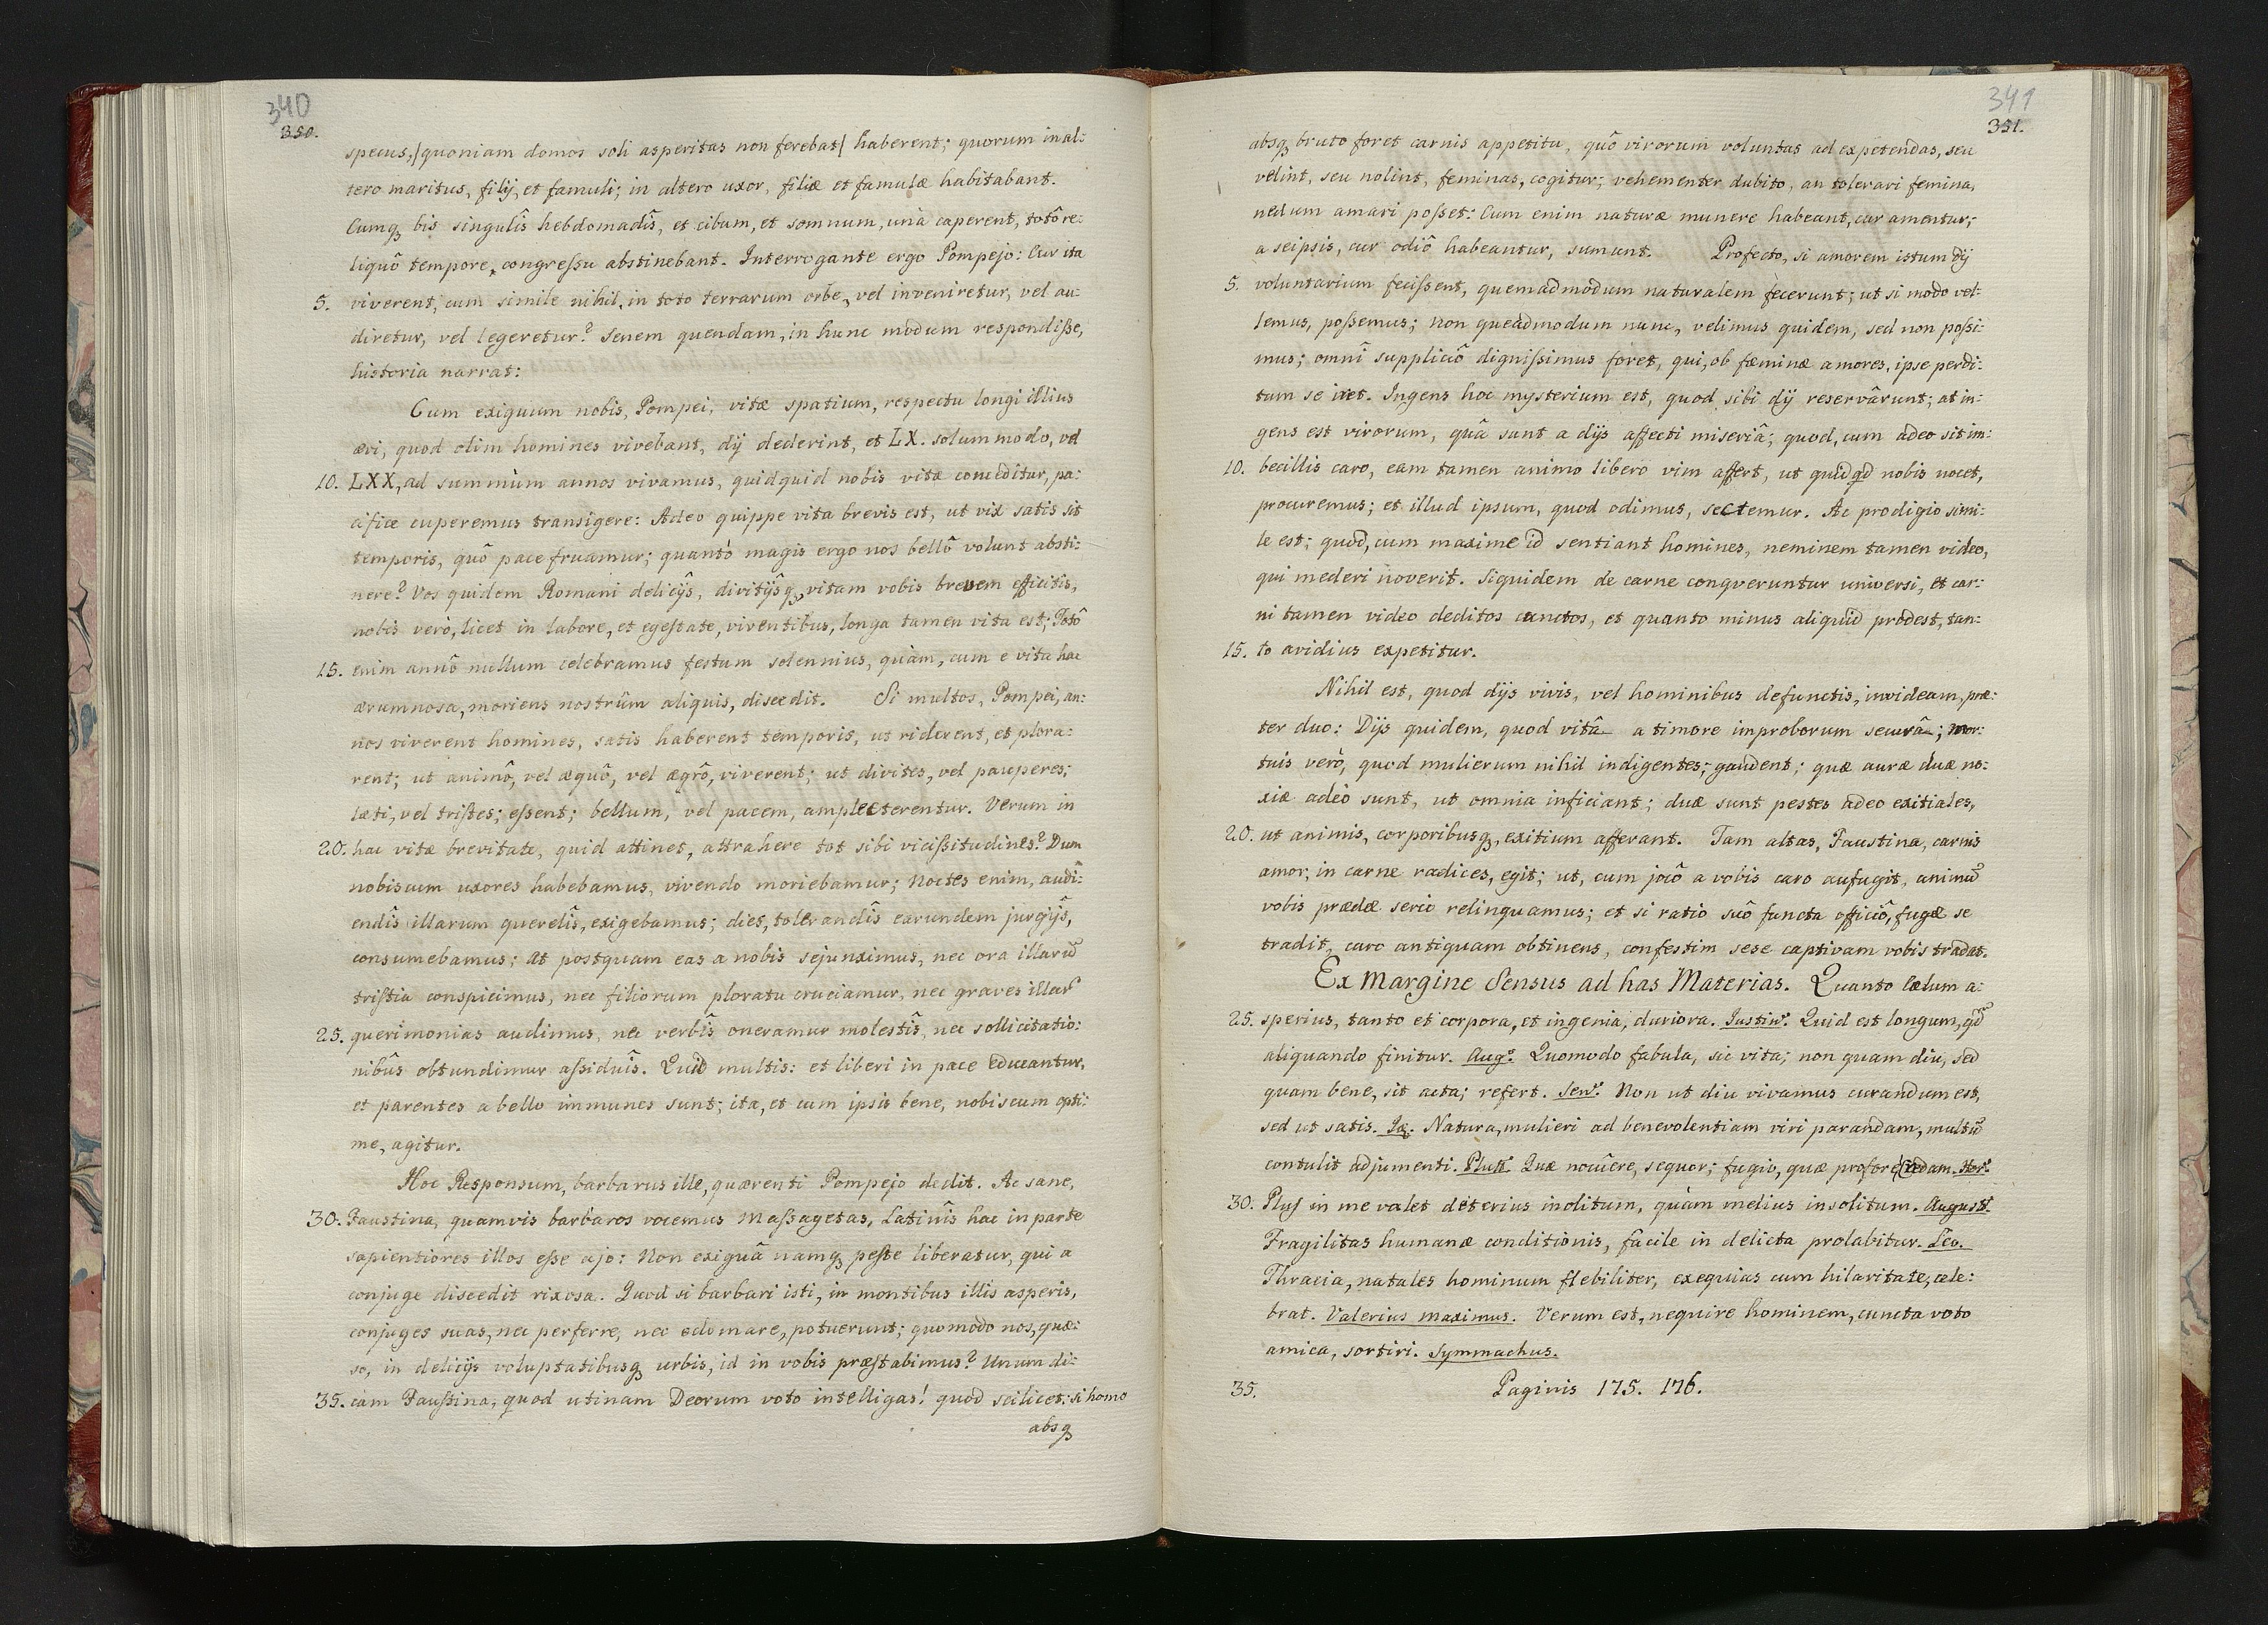 340
350.
specus, /quoniam domos soli asperitas non ferebat/ haberent; quorum in al:
tero maritus, filij, et famuli; in altero uxor, filiæ et famulæ habitabant.
Cumq₃ bis singulîs hebdomadîs, et cibum, et somnum, unà caperent, totô re:
liquô tempore, congreſsu abstinebant. Interrogante ergo Pompejo: Cur ita
5. viverent, cum simile nihil, in toto terrarum orbe, vel inveniretur, vel au:
diretur, vel legeretur? Senem quendam, in hunc modum respondiſse,
historia narrat:
Cum exiguum nobis, Pompei, vitæ spatium, respectu longi illius
ævi, quod olim homines vivebant, dij dederint, et LX. solummodo, vel
10. LXX, ad summùm annos vivamus, quidquid nobis vitæ conceditur, pa:
cificè cuperemus transigere: Adeo quippe vita brevis est, ut vix satis sit
temporis, quô pace fruamur; quantò magis ergo nos bellô volunt absti:
nere? Vos quidem Romani delicijs, divitijsq₃, vitam vobis brevem efficitis,
nobis verò, licet in labore, et egeſtate, viventibus, longa tamen vita est; Totô
15. enim annô nullum celebramus festum solennius, quàm, cum e vita hac
ærumnosa, moriens nostrûm aliquis, discedit. Si multos, Pompei, an:
nos viverent homines, satis haberent temporis, ut riderent, et plora:
rent; ut animô, vel æquô, vel ægrô, viverent; ut divites, vel pauperes;
læti, vel triſtes; eſsent; bellum, vel pacem, amplecterentur. Verum in
20. hac vitæ brevitate, quid attinet, attrahere tot sibi viciſsitudines? Dum
nobiscum uxores habebamus, vivendo moriebamur; Noctes enim, audi:
endîs illarum querelîs, exigebamus; dies, tolerandîs earundem jurgijs,
consumebamus; at postquam eas a nobis sejunximus, nec ora illarū
triſtia conspicimus, nec filiorum ploratu cruciamur, nec graves illarū
25. querimonias audimus, nec verbîs oneramur molestîs, nec sollicitatio:
nibûs obtundimur aſsiduîs. Quid multis: et liberi in pace educantur,
et parentes a bello immunes sunt; ita, et cum ipsis bene, nobiscum opti:
me, agitur.
Hoc Responsum, barbarus ille, quærenti Pompejo dedit. Ac sane,
30. Faustina, quamvis barbaros vocemus Maſsagetas, Latinîs hac in parte
sapientiores illos eſse ajo: Non exiguâ namq₃ peſte liberatur, qui a
conjuge discedit rixosa. Quod si barbari isti, in montibus illis asperis,
conjuges suas, nec perferre, nec edomare, potuerunt; quomodo nos, quæ:
so, in delicijs voluptatibusq₃ urbis, id in vobis præſtabimus? Unum di:
35. cam Fauſtina, quod utinam Deorum voto intelligas! quod scilicet: si homo
absq₃
341
351.
absq₃ bruto foret carnis appetitu, quô virorum voluntas ad expetendas, seu
velint, seu nolint, feminas, cogitur; vehementer dubito, an tolerari femina,
nedum amari poſset: Cum enim naturæ munere habeant, cur amentur;
a seipsis, cur odiô habeantur, sumunt. Profecto, si amorem istum dij
5. voluntarium feciſsent, quemadmodum naturalem fècerunt; ut si modo vel:
lemus, poſsemus; non queadmodum nunc, velimus quidem, sed non poſsi:
mus; omnî suppliciô digniſsimus foret, qui, ob fæminæ amores, ipse perdi:
tum se iret. Ingens hoc mysterium est, quod sibi dij reservârunt; at in:
gens est virorum, quâ sunt a dijs affecti miseriâ; quod, cum adeo sit im:
10. becillis caro, eam tamen animo libero vim affert, ut quidqd nobis nocet,
procuremus; et illud ipsum, quod odimus, sectemur. Ac prodigio simi:
le est; quod, cum maxime id sentiant homines, neminem tamen video,
qui mederi noverit. Siquidem de carne conqveruntur universi, et car:
ni tamen video deditos cunctos, et quanto minus aliquid prodest, tan:
15. to avidius expetitur.
Nihil est, quod dijs vivis, vel hominibus defunctis, invideam, præ:
ter duo: Dijs quidem, quod vitâ a timore improborum securâ; mor:
tuis verò, quod mulierum nihil indigentes, gaudent; quæ auræ duæ no:
xiæ adeò sunt, ut omnia inficiant; duæ sunt pestes adeo exitiales,
20. ut animis, corporibusq₃, exitium afferant. Tam altas, Faustina, carnis
amor, in carne radices, egit; ut, cum jocô a vobis caro aufugit, animū
vobis prædæ serio relinquamus; et si ratio suô functa officiô, fugæ se
tradit, caro antiquam obtinens, confestim sese captivam vobis tradat.
Ex Margine Sensus ad has Materias. Quanto cælum a:
25. sperius, tanto et corpora, et ingenia, duriora. Justin9. Quid est longum, qd
aliquando finitur. Aug9. Quomodo fabula, sic vita; non quam diu, sed
quam bene, sit acta; refert. Sen9. Non ut diu vivamus curandum est,
sed ut satis. Id. Natura, mulieri ad benevolentiam viri parandam, multū
contulit adjumenti. Plut. Quæ nocûere, sequor; fugio, quæ profore credam. Hor9.
30. Pluſ in me valet deterius inolitum, quàm melius insolitum. August.
Fragilitas humanæ conditionis, facile in delicta prolabitur. Leo.
Thracia, natales hominum flebiliter, exequias cum hilaritate, cele:
brat. Valerius Maximus. Verum est, nequire hominem, cuncta voto
amica, sortiri. Symmachus.
35. Paginis 175. 176.